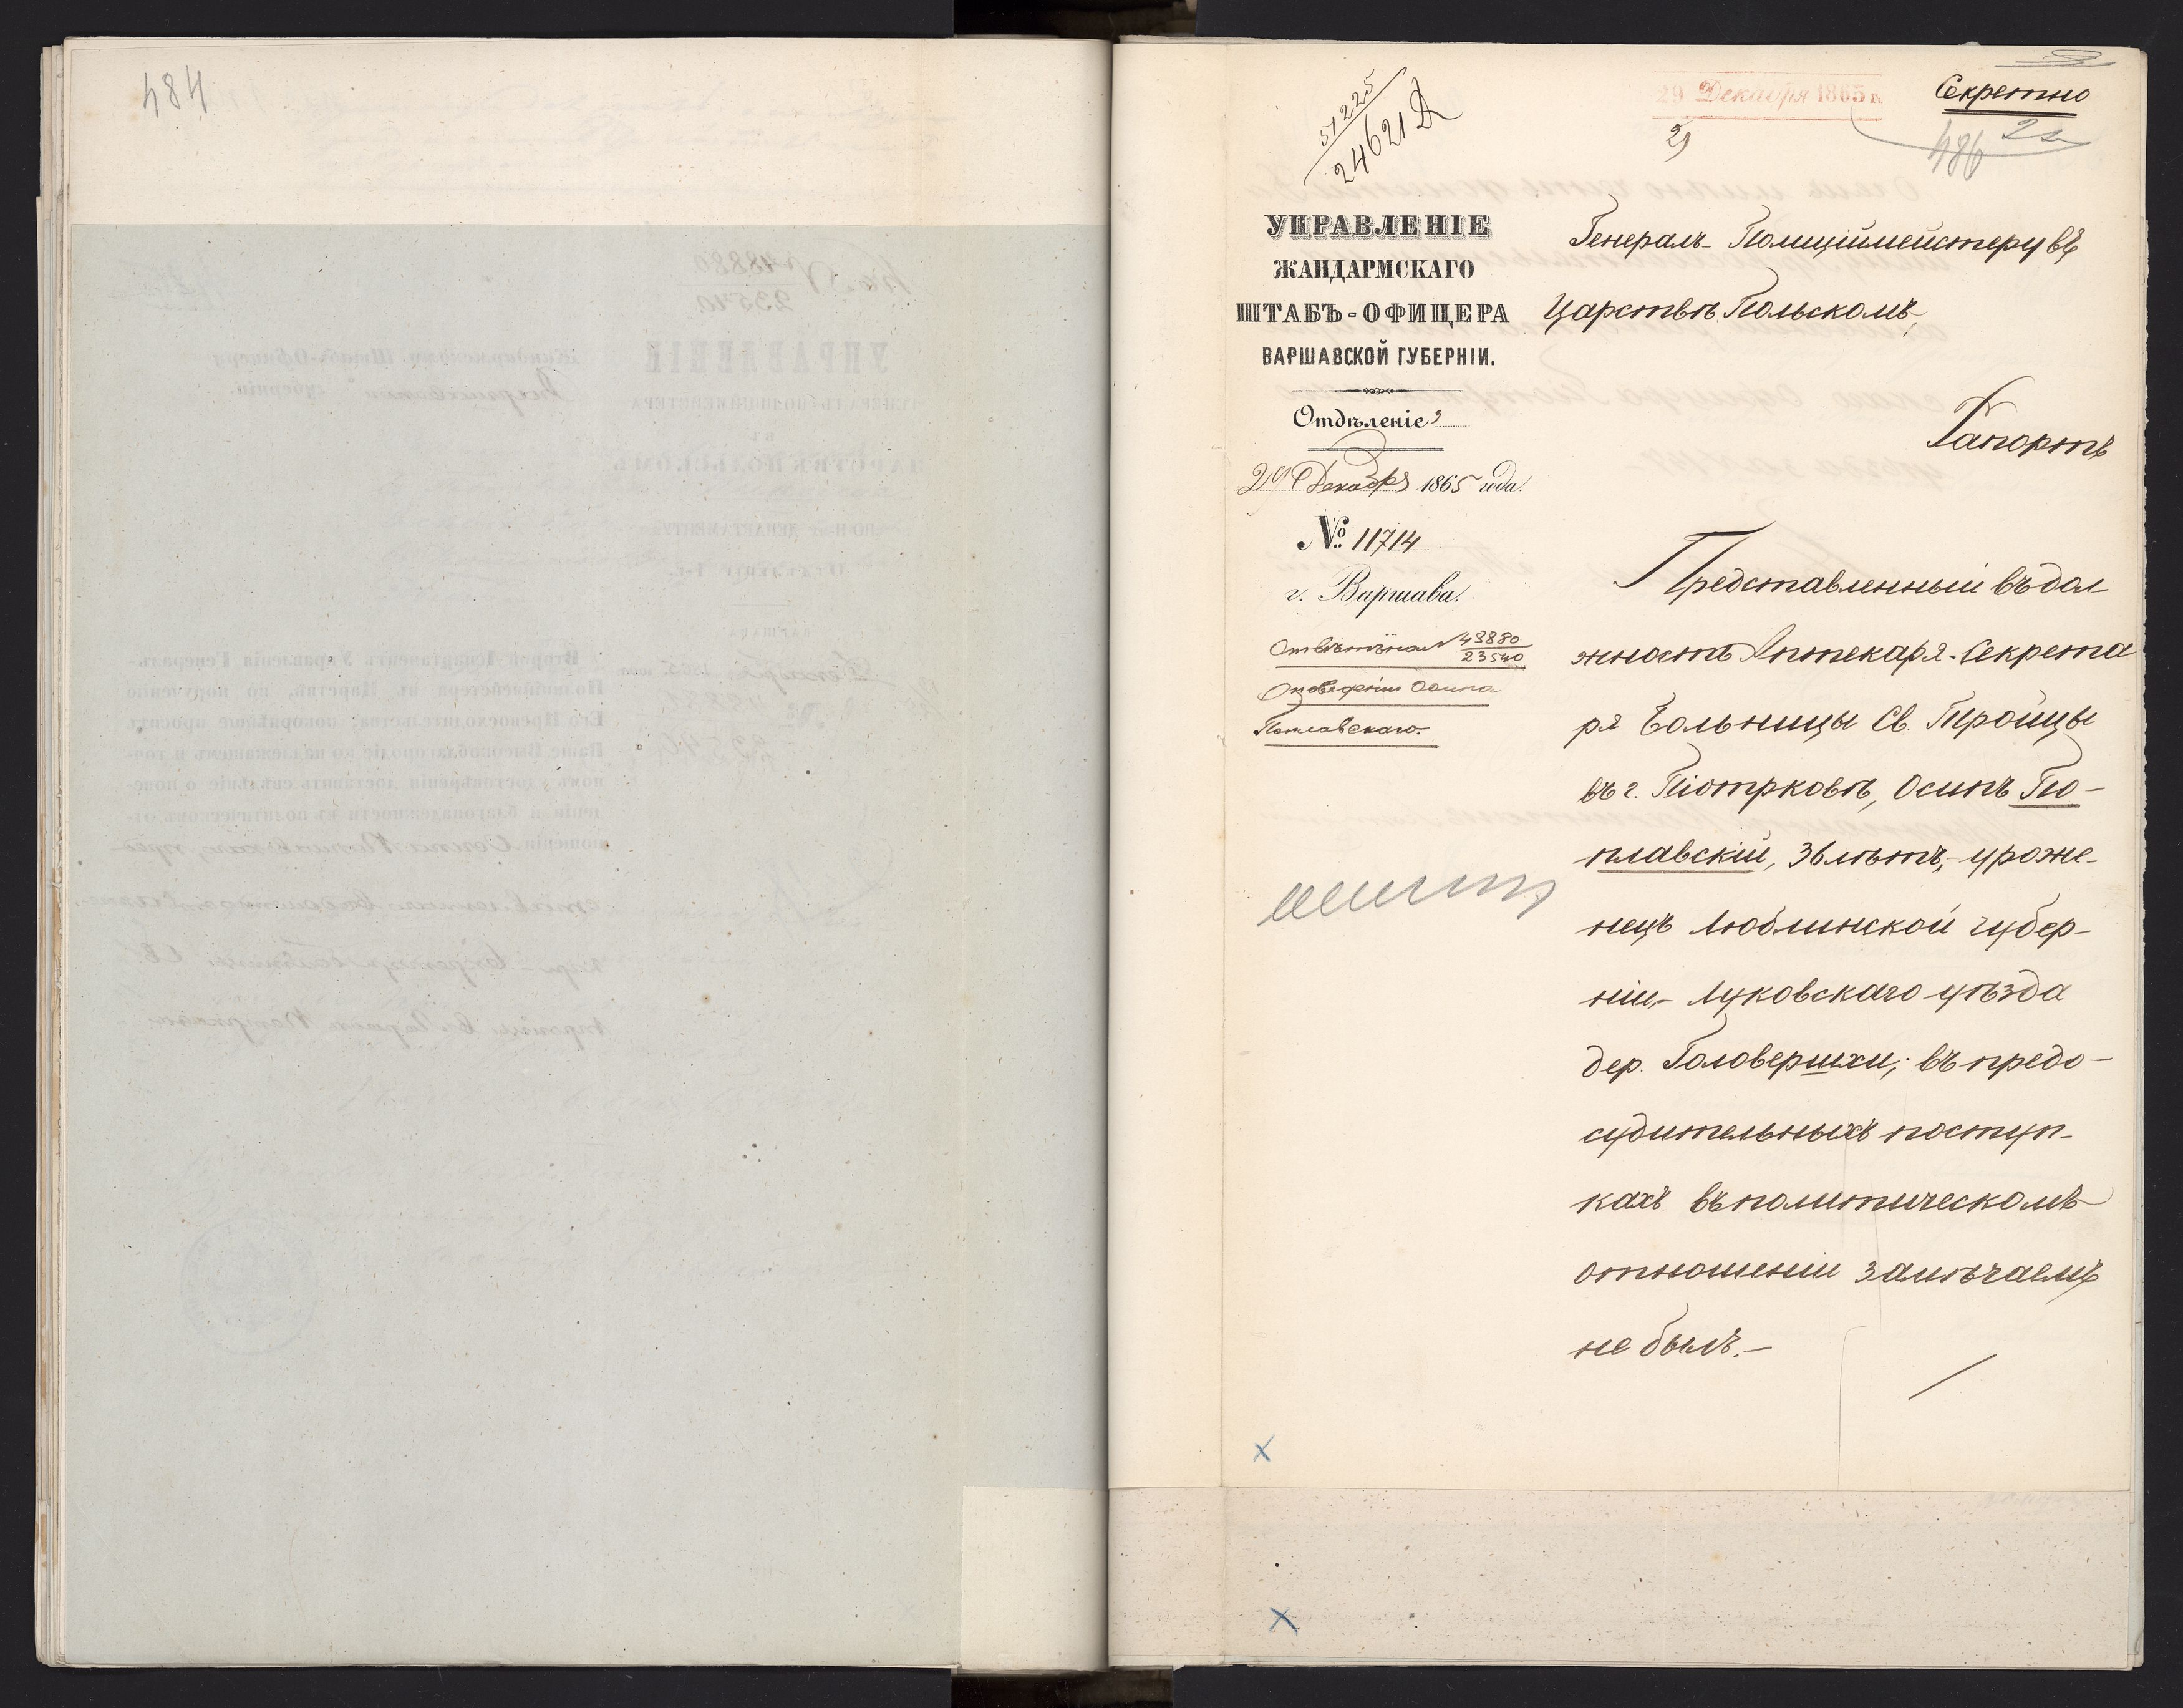 484
51225
24621 Д
29 Декабря 1865 г.
29
Секретно
486
УПРАВЛЕНІЕ
ЖАНДАРМСКАГО
ШТАБЪ-ОФИЦЕРА
ВАРШАВСКОЙ ГУБЕРНІИ.
Отдѣленіе
29 Декабря 1865 года.
№ 11714
г. Варшава.
На №
23540
О поведеніи Осипа
Поплавскаго.
Генералъ-Полиціймейстеру въ
Царствѣ Польскомъ,
Рапортъ
Представленный въ дол-
жность Аптекаря-Секрета
ря Больницы Св. Тройцы
въ г. Піотрковѣ, Осипъ По-
плавскій, 36 лѣтъ, уроже-
нецъ Люблинской губер-
ніи,- Луковскаго уѣзда
дер. Головершхи; въ предо-
судительныхъ поступ-
кахъ въ политическомъ
отношеніи замѣчаемъ
не былъ.-